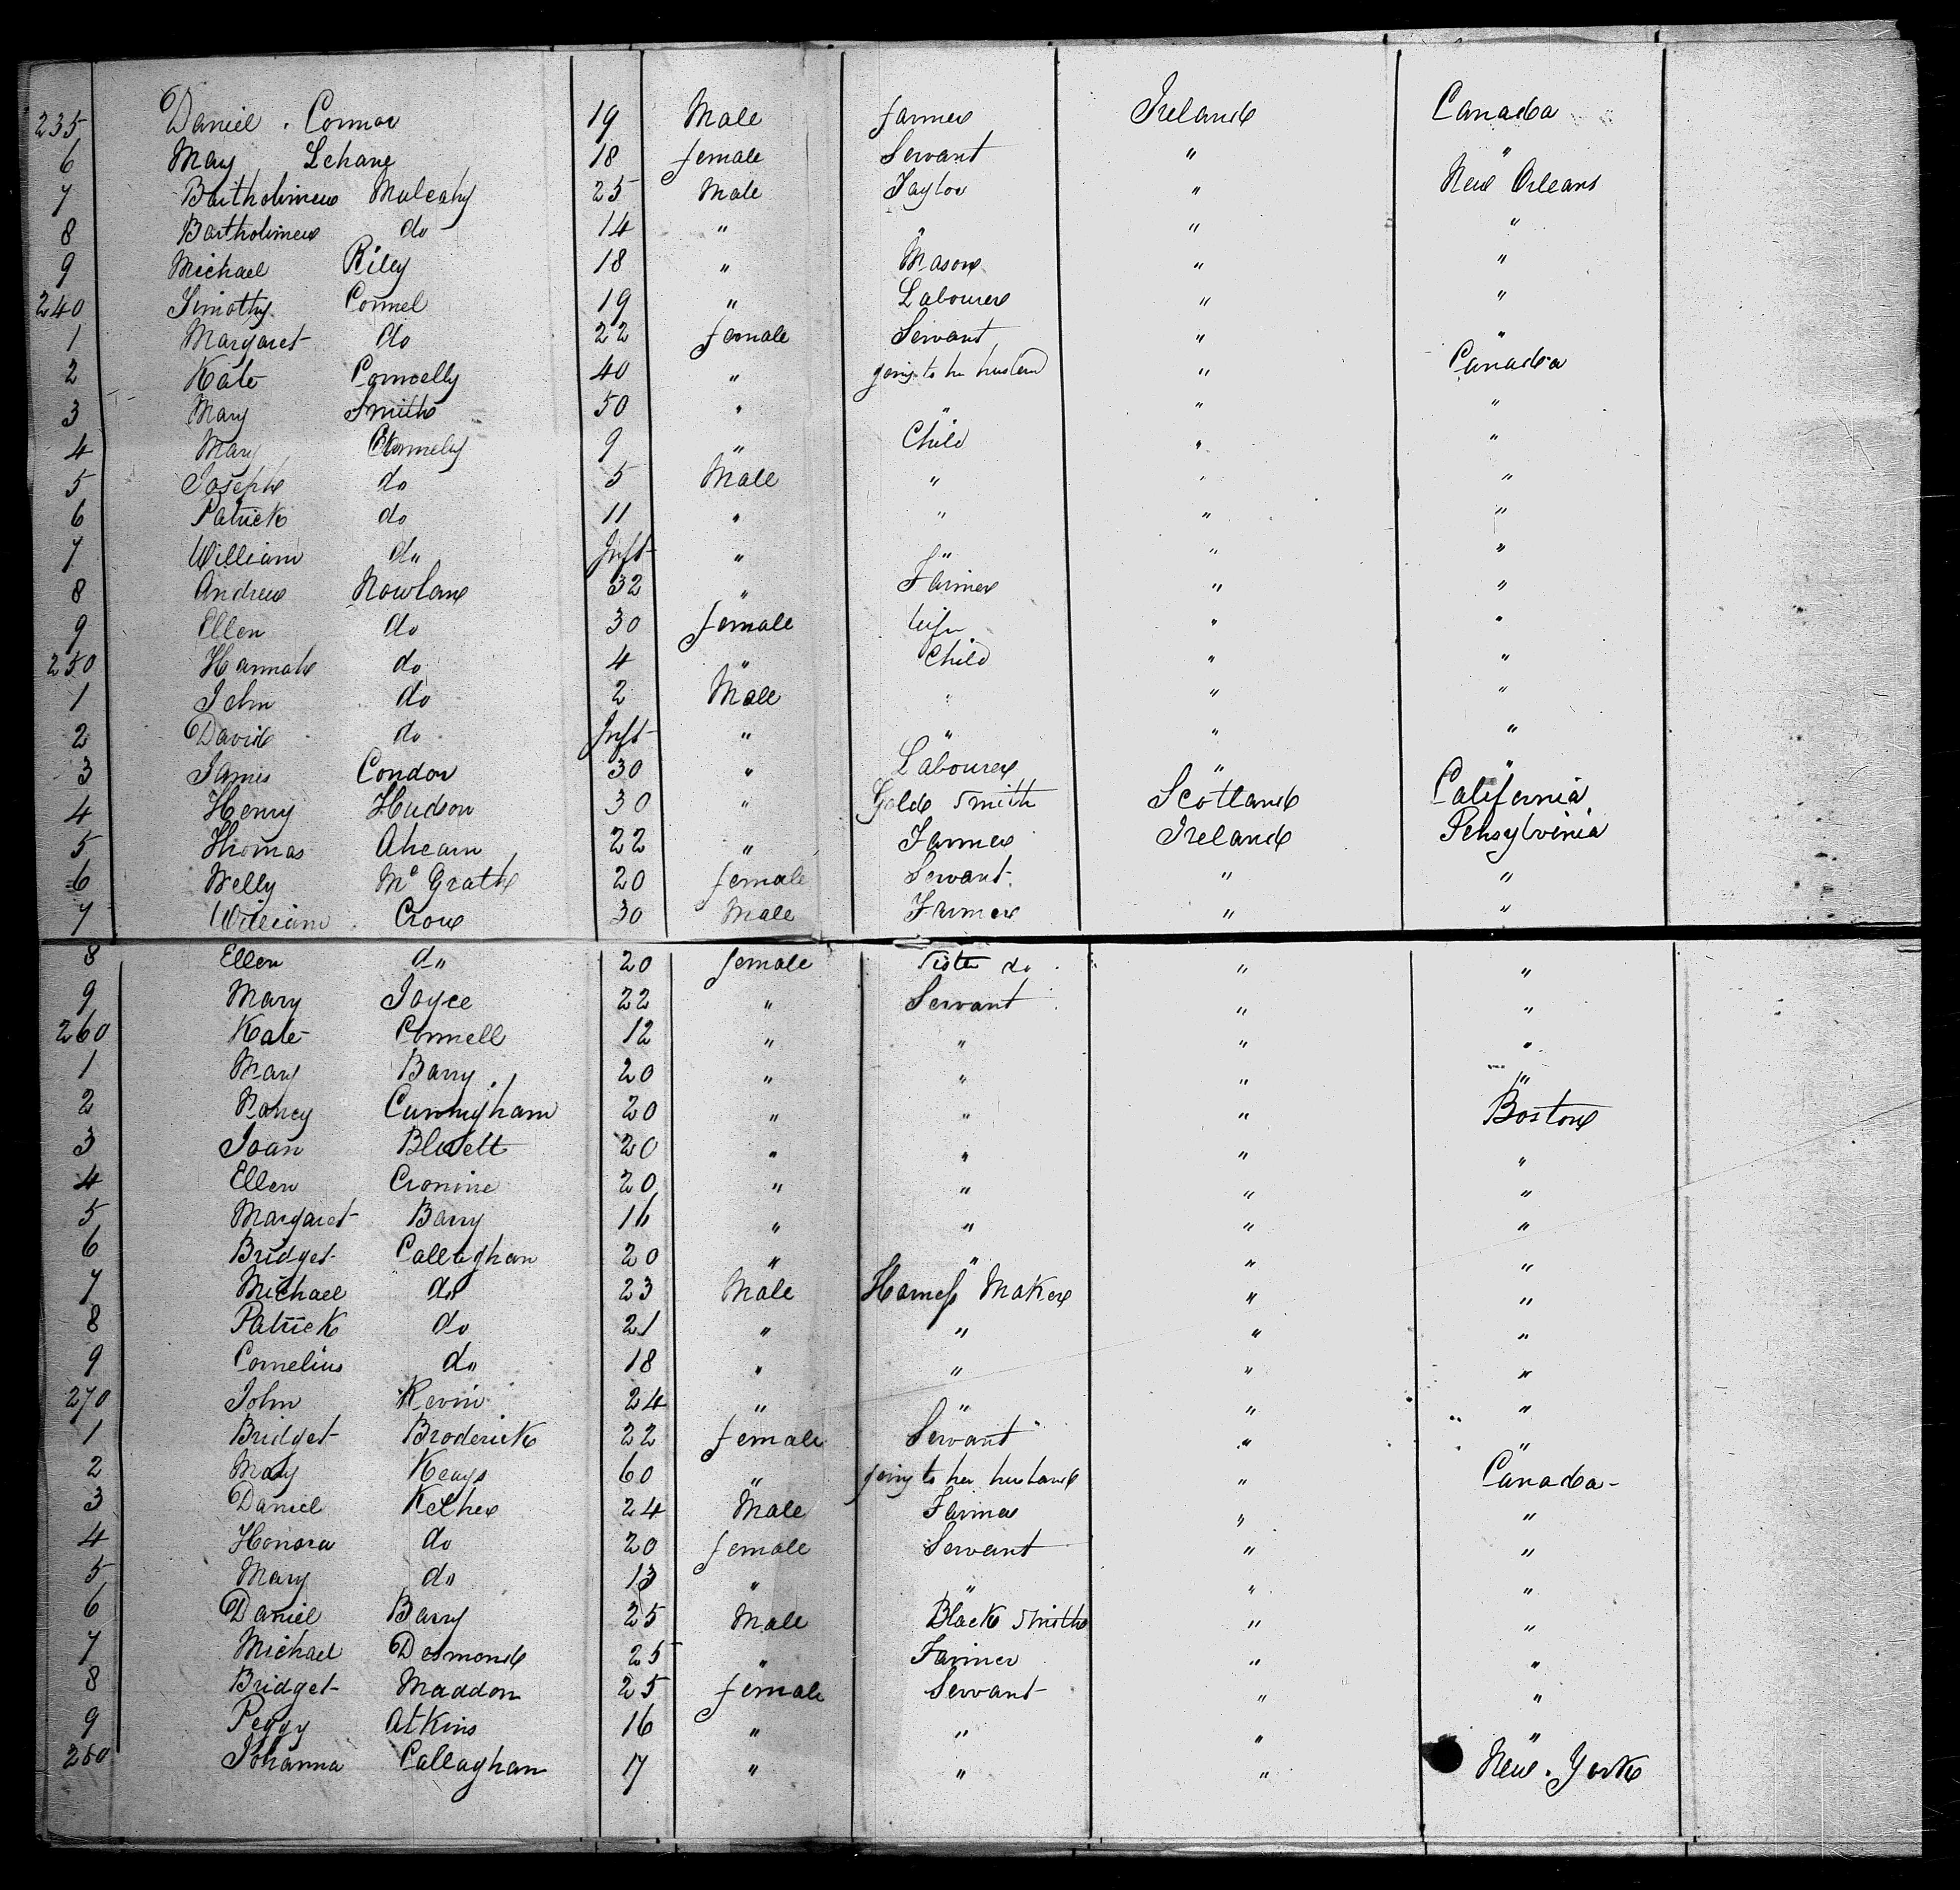 235 Daniel . Connor 19 Male farmer Ireland Canada
6 May Lehane 18 female Servant " "
7 Bartholimew Mulcahy 25 Male Taylor " New Orleans
8 Bartholimew do 14 " " " "
9 Michael Riley 18 " Mason " "
240 Timothy Connel 19 " Labourer " "
1 Margaret do 22 female Servant " "
2 Kate Connelly 40 " going to her husband " Canada
3 Mary Smith 50 " " " "
4 Mary Connely 9 " Child " "
5 Joseph do 5 Male " " "
6 Patrick do 11 " " " "
7 William do Inft " " " "
8 Andrew Nowlan 32 " Farmer " "
9 Ellen do 30 female wife " "
250 Hannah do 4 " Child " "
1 John do 2 Male " " "
2 David do Inft " " " "
3 James Condon 30 " Labourer " "
4 Henry Hudson 30 " Gold Smith Scotland California
5 Thomas Ahearn 22 " Farmer Ireland Pensylvinia
6 Nelly Mc Grath 20 female Servant " "
7 William Crow 30 Male Farmer " "
8 Ellen do 20 female Sister do " "
9 Mary Joyce 22 " Servant " "
260 Kate Connell 12 " " " "
1 Mary Barry 20 " " " "
2 Nancy Cunningham 20 " " " Boston
3 Joan 20 " " " "
4 Ellen Cronine 20 " " " "
5 Margaret Barry 16 " " " "
6 Bridget Callaghan 20 " " " "
7 Michael do 23 Male Harness Maker " "
8 Patrick do 21 " " " "
9 Cornelius do 18 " " " "
270 John 24 " " " "
1 Bridget Broderick 22 female Servant " "
2 May Keays 60 " going to her husband " Canada -
3 Daniel Kether 24 Male Farmer " "
4 Honora do 20 female Servant " "
5 Mary do 13 " " " "
6 Daniel Barry 25 Male Black Smith " "
7 Michael Desmond 25 " Farmer " "
8 Bridget Maddon 25 female Servant " "
9 Peggy Atkins 16 " " " "
280 Johanna Callaghan 17 " " " New . York